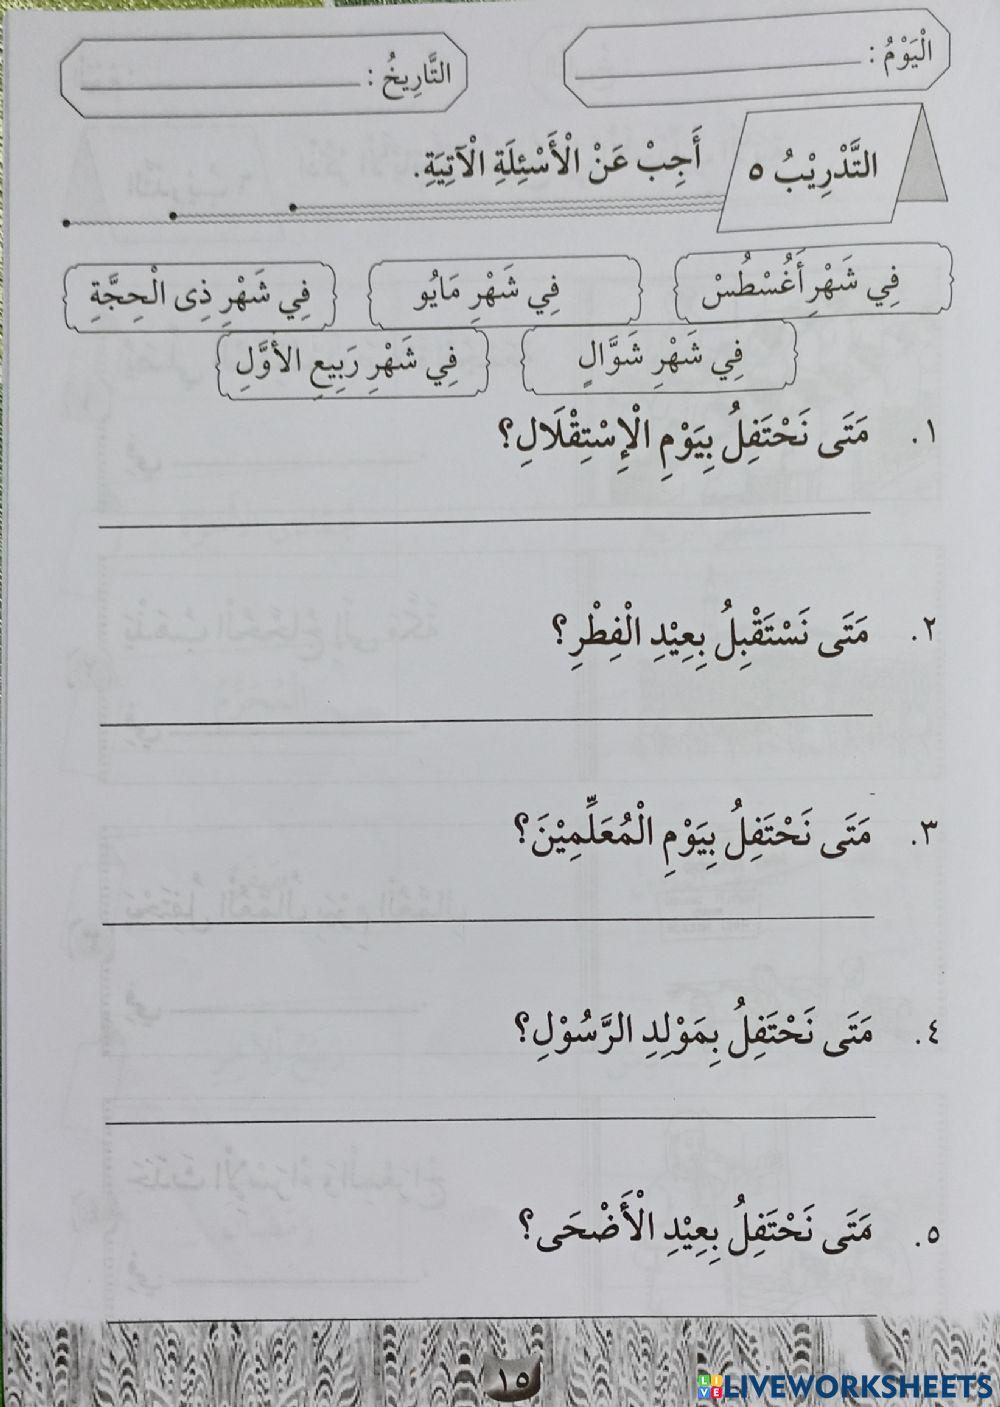 الْيَوْمُ :
التَّارِيخُ :
التَّدْرِيْبُ ٥
أَجِبْ عَنْ الْأَسْئِلَةِ الْآتِيَةِ.
فِي شَهْرِ أَغُسْطُسْ
فِي شَهْرِ مَايُو
فِي شَهْرِ ذِى الْحِجَّةِ
فِي شَهْرِ شَوَّالٍ
فِي شَهْرِ رَبِيعِ الأَوَّلِ
١. مَتَى نَحْتَفِلُ بِيَوْمِ الْإِسْتِقْلَالِ؟
٢. مَتَى نَسْتَقْبِلُ بِعِيْدِ الْفِطْرِ؟
٣. مَتَى نَحْتَفِلُ بِيَوْمِ الْمُعَلِّمِيْنَ؟
٤. مَتَى نَحْتَفِلُ بِمَوْلِدِ الرَّسُوْلِ؟
٥. مَتَى نَحْتَفِلُ بِعِيْدِ الْأَضْحَى؟
١٥
LIVEWORKSHEETS